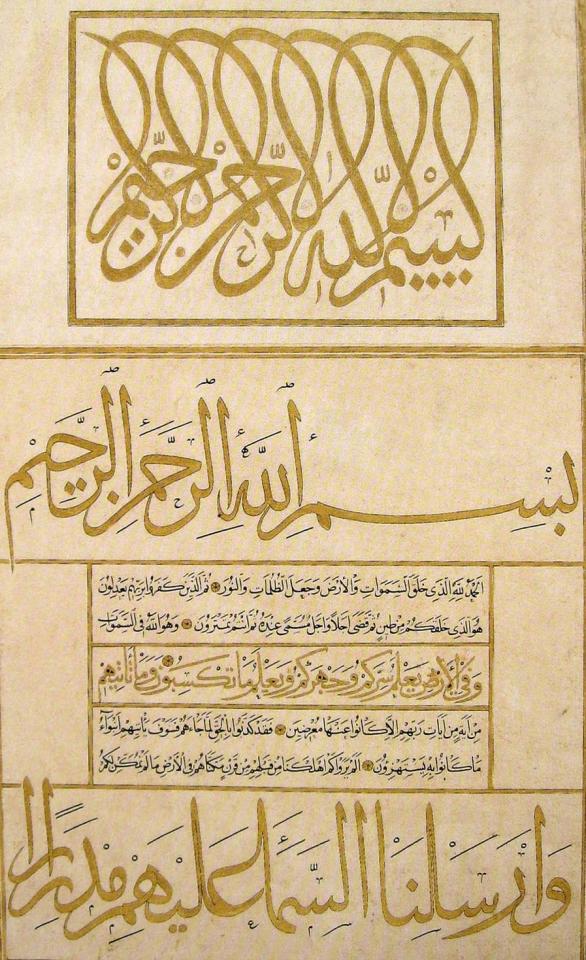 بسم الله الرحمن الرحيم
بسم الله الرحمن الرحيم
الحمد لله الذي خلق السموات والارض وجعل الظلمات والنور ثم الذين كفروا بربهم يعدلون
هو الذي خلقكم من طين ثم قضى اجلا واجل مسمى عنده ثم انتم تمترون وهو الله في السموات
وفي الارض يعلم سركم وجهركم ويعلم ما تكسبون وما تاتيهم
من اية من ايات ربهم الا كانوا عنها معرضين فقد كذبوا بالحق لما جاءهم فسوف ياتيهم انبواء
ما كانوا به يستهزؤن الم يروا كم اهلكنا من قبلهم من قرن مكناهم في الارض ما لم نمكن لكم
وارسلنا السماء عليهم مدرارا